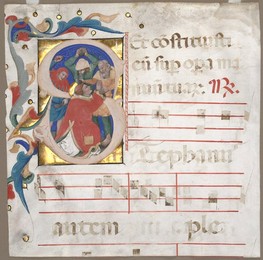 Et cōstituisti
eū sup opa ma
nuum tuaꝝ. ℟.
STephanu
autem ple